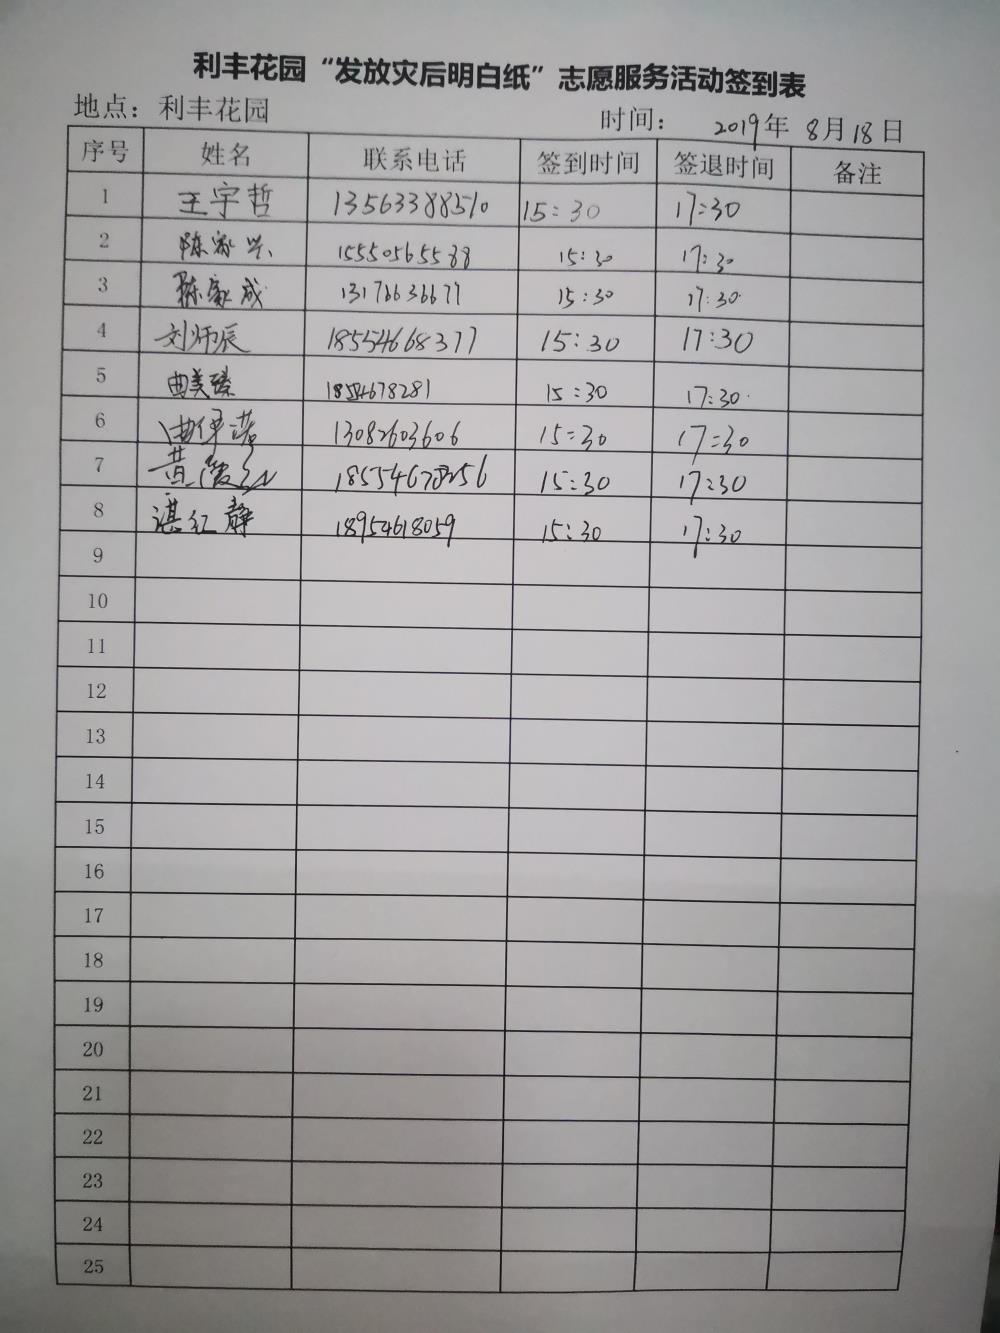 利丰花园“发放灾后明白纸”志愿服务活动签到表
地点：利丰花园 时间： 2019年 8月18日
序号 姓名 联系电话 签到时间 签退时间 备注
1 王宇哲 13563388510 15:30 17:30
2 陈家兴 15550565588 15:30 17:30
3 陈家成 13176636677 15:30 17:30
4 刘师辰 18554668377 15:30 17:30
5 曲美臻 18554678281 15:30 17:30
6 曲伊诺 13082603606 15:30 17:30
7 黄 15:30 17:30
8 谌红静 18954618059 15:30 17:30
9
10
11
12
13
14
15
16
17
18
19
20
21
22
23
24
25